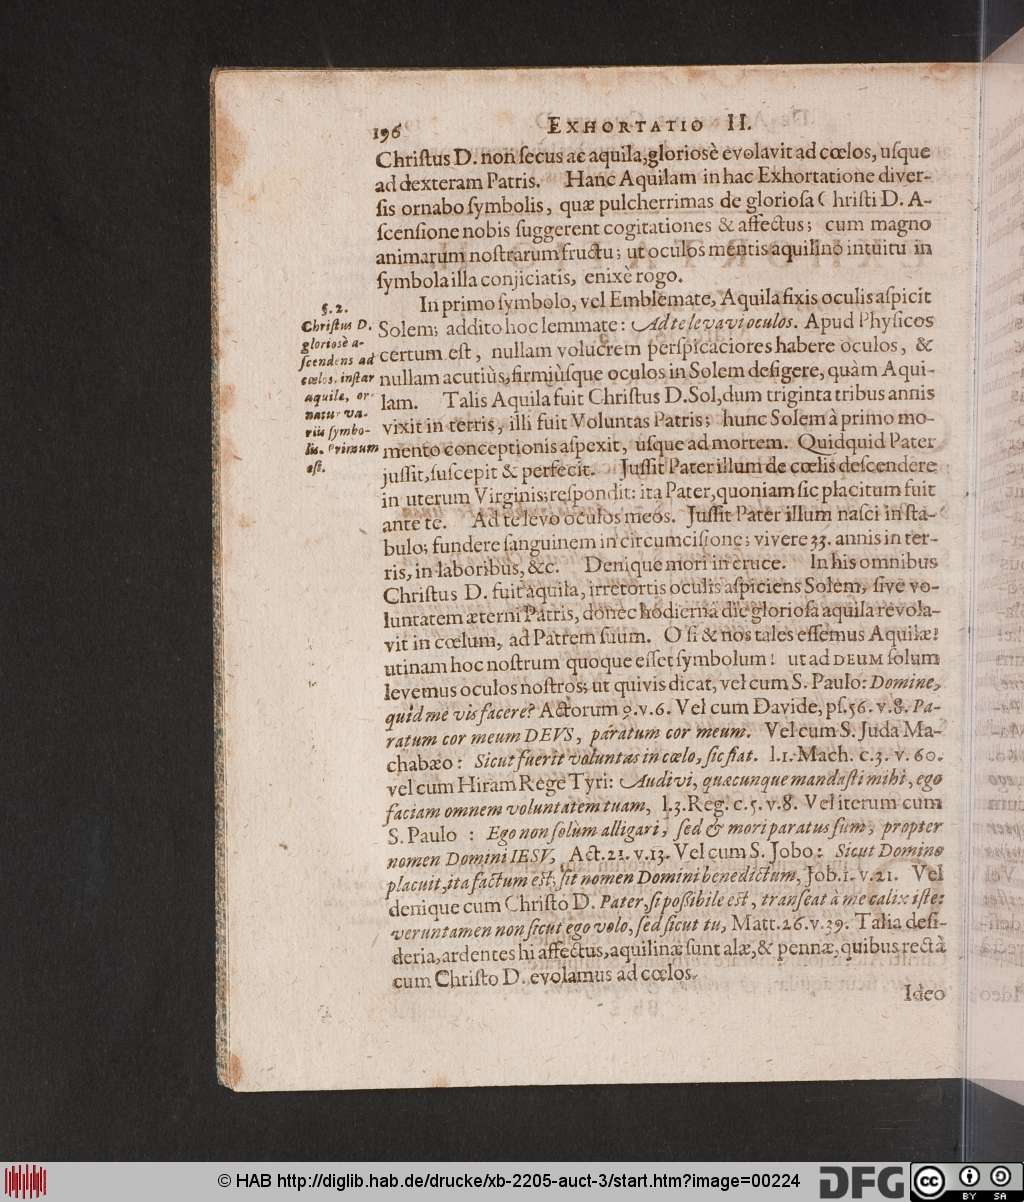 196
EXHORTATIO II.
Chriſtus D. non ſecus ac aquila, glorioſè evolavit ad cœlos, uſque
ad dexteram Patris. Hanc Aquilam in hac Exhortatione diver-
ſis ornabo ſymbolis, quæ pulcherrimas de glorioſa Chriſti D. A-
ſcenſione nobis ſuggerent cogitationes & affectus; cum magno
animarum noſtrarum fructu; ut oculos mentis aquilino intuitu in
ſymbola illa conjiciatis, enixè rogo.
§. 2.
Chriſtus D.
glorioſè a-
ſcendens ad
cœlos, inſtar
aquilæ, or-
natur va-
riis ſymbo-
lis. Primum
eſt.
In primo ſymbolo, vel Emblemate, Aquila fixis oculis aſpicit
Solem; addito hoc lemmate: Ad te levavi oculos. Apud Phyſicos
certum eſt, nullam volucrem perſpicaciores habere oculos, &
nullam acutiùs, firmiúſque oculos in Solem defigere, quàm Aqui-
lam. Talis Aquila fuit Chriſtus D. Sol, dum triginta tribus annis
vixit in terris, illi fuit Voluntas Patris; hunc Solem à primo mo-
mento conceptionis aſpexit, uſque ad mortem. Quidquid Pater
juſſit, ſuſcepit & perfecit. Juſſit Pater illum de cœlis deſcendere
in uterum Virginis; reſpondit: ita Pater, quoniam ſic placitum fuit
ante te. Ad te levo oculos meos. Juſſit Pater illum naſci in ſta-
bulo; fundere ſanguinem in circumciſione; vivere 33. annis in ter-
ris, in laboribus, &c. Denique mori in cruce. In his omnibus
Chriſtus D. fuit aquila, irretortis oculis aſpiciens Solem, ſive vo-
luntatem æterni Patris, donec hodierna die glorioſa aquila revola-
vit in cœlum, ad Patrem ſuum. O ſi & nos tales eſſemus Aquilæ!
utinam hoc noſtrum quoque eſſet ſymbolum! ut ad DEUM ſolum
levemus oculos noſtros; ut quivis dicat, vel cum S. Paulo: Domine,
quid me vis facere? Actorum 9. v. 6. Vel cum Davide, pſ. 56. v. 8. Pa-
ratum cor meum DEVS, paratum cor meum. Vel cum S. Juda Ma-
chabæo: Sicut fuerit voluntas in cœlo, ſic fiat. l. 1. Mach. c. 3. v. 60.
vel cum Hiram Rege Tyri: Audivi, quæcunque mandaſti mihi, ego
faciam omnem voluntatem tuam, l. 3. Reg. c. 5. v. 8. Vel iterum cum
S. Paulo : Ego non ſolùm alligari, ſed & mori paratus ſum, propter
nomen Domini IESV, Act. 21. v. 13. Vel cum S. Jobo: Sicut Domino
placuit, ita factum eſt; ſit nomen Domini benedictum, Job. 1. v. 21. Vel
denique cum Chriſto D. Pater, ſi poßibile eſt, tranſeat à me calix iſte:
veruntamen non ſicut ego volo, ſed ſicut tu, Matt. 26. v. 39. Talia deſi-
deria, ardentes hi affectus, aquilinæ ſunt alæ, & pennæ, quibus rectà
cum Chriſto D. evolamus ad cœlos.
Ideo
© HAB http://diglib.hab.de/drucke/xb-2205-auct-3/start.htm?image=00224
DFG
cc BY SA